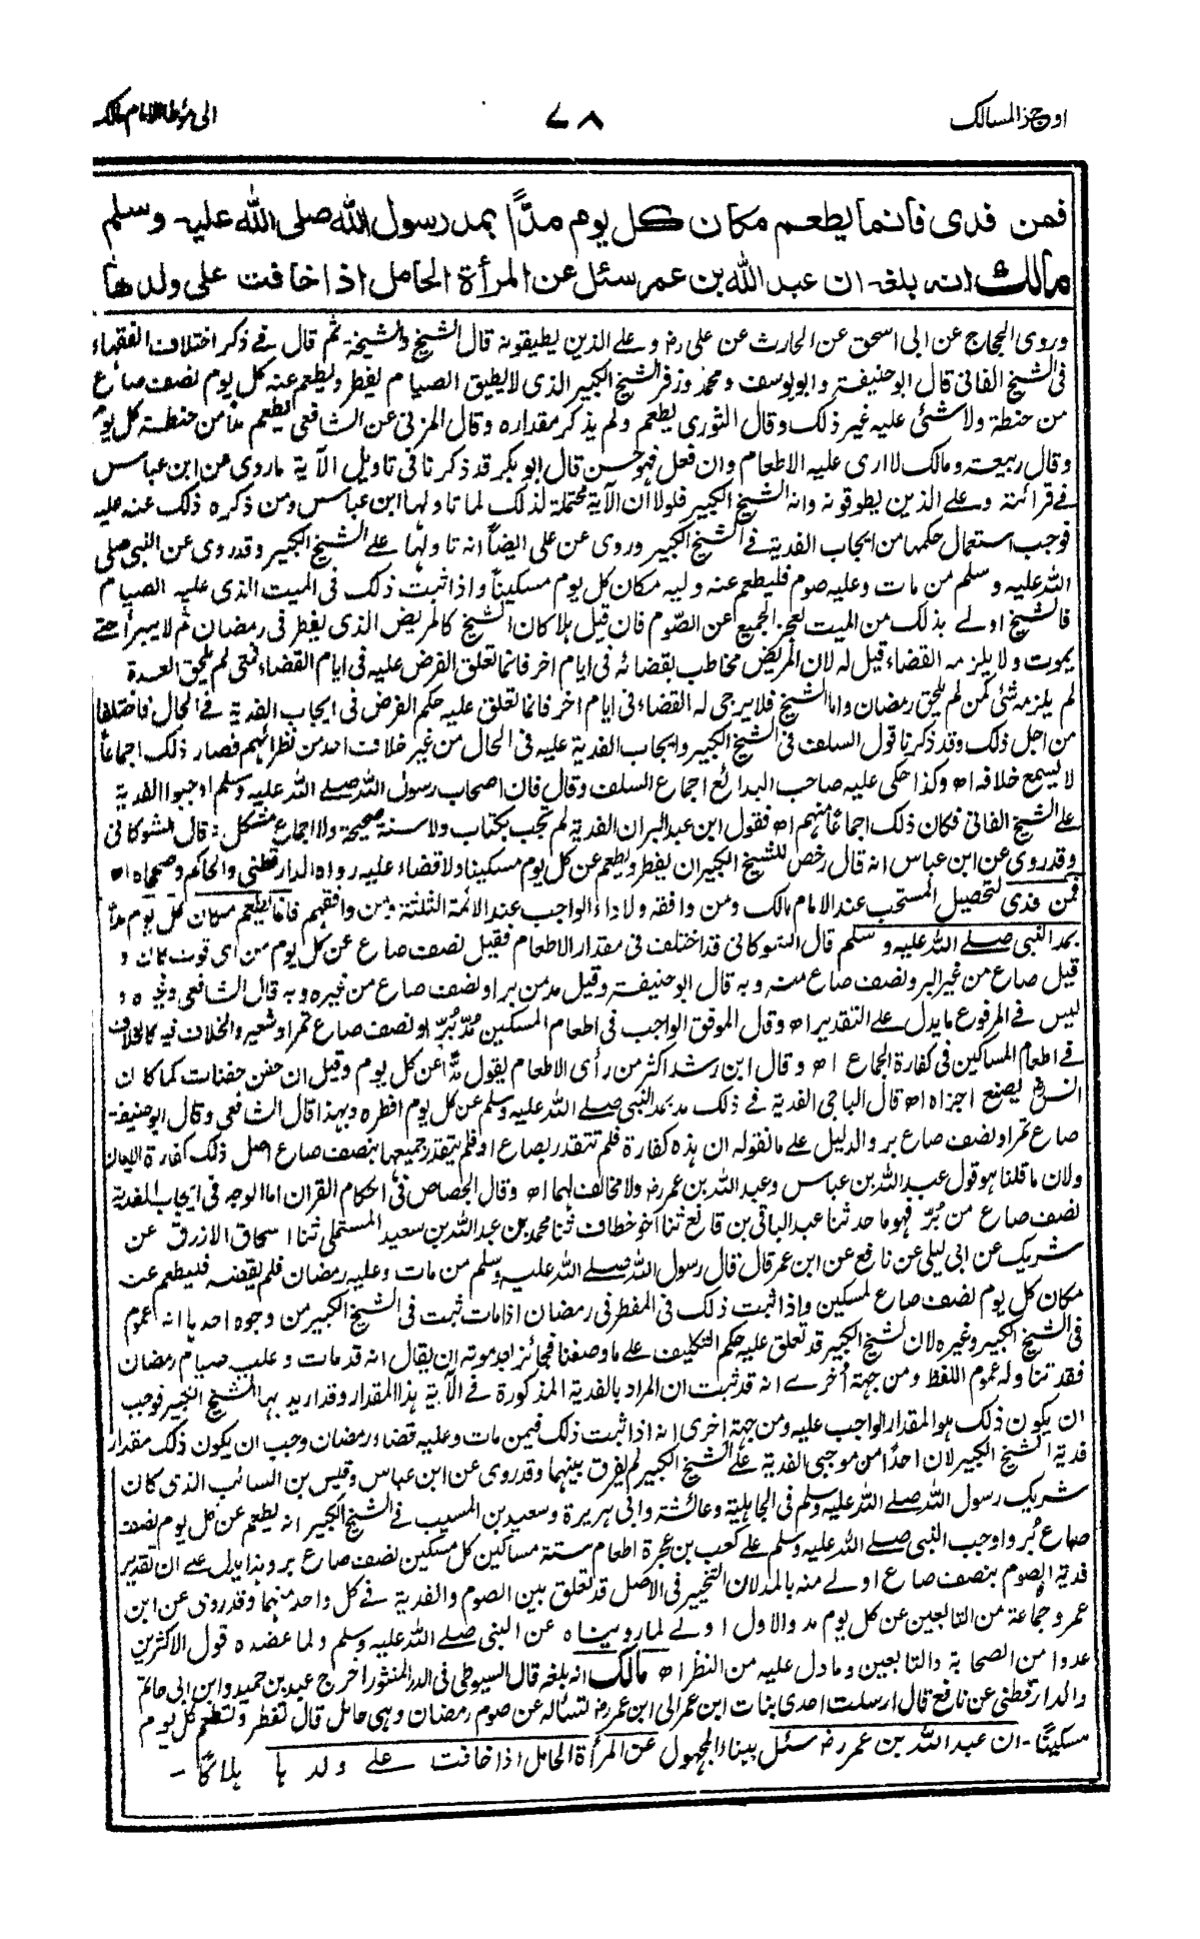 اوجز المسالك
٧٨
الى مؤطا الامام مالك
فمن فدى فانما يطعم مكان كل يوم مدًّا بمد رسول الله صلى الله عليه وسلم
مالك انه بلغه ان عبد الله بن عمر سئل عن المرأة الحامل اذا خافت على ولدها
وروى الحجاج عن ابى اسحق عن الحارث عن على رض وعلى الذين يطيقونه قال الشيخ والشيخة ثم قال فى ذكر اختلاف الفقهاء
فى الشيخ الفانى قال ابو حنيفة وابو يوسف ومحمد وزفر الشيخ الكبير الذى لا يطيق الصيام يفطر ويطعم عنه كل يوم نصف صاع
من حنطة ولا شئى عليه غير ذلك وقال الثورى يطعم ولم يذكر مقداره وقال المزنى عن الشافعى يطعم مدا من حنطة كل يوم
وقال ربيعة ومالك لا ارى عليه الاطعام وان فعل فهو حسن قال ابو بكر قد ذكرنا فى تاويل الآية ماروى عن ابن عباس
فى قرائته وعلى الذين يطوقونه وانه الشيخ الكبير فلولا أن الآية محتملة لذلك لما تاولها ابن عباس ومن ذكره ذلك عنه عليه
فوجب استعمال حكمها من ايجاب الفدية فى الشيخ الكبير وروى عن على ايضاً انه تاولها على الشيخ الكبير وقد روى عن النبى صلى
الله عليه وسلم من مات وعليه صوم فليطعم عنه وليه مكان كل يوم مسكيناً واذا ثبت ذلك فى الميت الذى عليه الصيام
فالشيخ اولى بذلك من الميت لعجز الجميع عن الصوم فان قيل هلا كان الشيخ كالمريض الذى يفطر فى رمضان ثم لا يبرأ حتى
يموت ولا يلزمه القضاء قيل له لان المريض مخاطب بقضائه فى ايام اخر فانما تعلق الفرض عليه فى ايام القضاء فمتى لم يلحق العدة
لم يلزمه شئى كمن لم يلحق رمضان واما الشيخ فلا يرجى له القضاء فى ايام اخر فانما تعلق عليه حكم الفرض فى ايجاب الفدية فى الحال فاختلفا
من اجل ذلك وقد ذكرنا قول السلف فى الشيخ الكبير وايجاب الفدية عليه فى الحال من غير خلاف احد من نظرائهم فصار ذلك اجماعاً
لا يسع خلافه اھ وكذا حكى عليه صاحب البدائع اجماع السلف وقال فان اصحاب رسول الله صلى الله عليه وسلم اوجبوا الفدية
على الشيخ الفانى فكان ذلك اجماعاً منهم اھ فقول ابن عبد البر ان الفدية لم تجب بكتاب ولا سنة صحيحة ولا اجماع مشكل : قال الشوكانى
وقد روى عن ابن عباس انه قال رخص للشيخ الكبير ان يفطر ويطعم عن كل يوم مسكينا ولا قضاء عليه رواه الدارقطنى والحاكم وصححاه اھ
فمن فدى لتحصيل المستحب عند الامام مالك ومن وافقه ولاداء الواجب عند الائمة الثلثة ومن وافقهم فانما يطعم مكان كل يوم مداً
بمد النبى صلى الله عليه وسلم قال الشوكانى قد اختلف فى مقدار الاطعام فقيل نصف صاع عن كل يوم من اى قوت كان و
قيل صاع من غير البر ونصف صاع منه وبه قال ابو حنيفة وقيل مد من بر او نصف صاع من غيره وبه قال الشافعى وغيره و
ليس فى المرفوع ما يدل على التقدير اھ وقال الموفق الواجب فى اطعام المسكين مُدّ بُرّ او نصف صاع تمر او شعير والخلاف فيه كالخلاف
فى اطعام المساكين فى كفارة الجماع اھ وقال ابن رشد اكثر من رأى الاطعام يقول مدٌّ عن كل يوم وقيل ان حفن حفنات كما كان
انس رض يصنع اجزاه اھ قال الباجى الفدية فى ذلك مد بمد النبى صلى الله عليه وسلم عن كل يوم افطره وبهذا قال الشافعى وقال ابو حنيفة
صاع تمر او نصف صاع بر والدليل على ما نقوله ان هذه كفارة فلم تتقدر بصاع او فلم يتقدر جميعها بنصف صاع اصل ذلك كفارة الايمان
ولان ما قلنا هو قول عبد الله بن عباس وعبد الله بن عمر رض ولا مخالف لهما اھ وقال الجصاص فى احكام القران اما الوجه فى ايجاب الفدية
نصف صاع من بُرّ فهو ما حدثنا عبد الباقى بن قانع ثنا اخو خطاف ثنا محمد بن عبد الله بن سعيد المستملى ثنا اسحاق الازرق عن
شريك عن ابى ليلى عن نافع عن ابن عمر قال قال رسول الله صلى الله عليه وسلم من مات وعليه رمضان فلم يقضه فليطعم عنه
مكان كل يوم نصف صاع لمسكين واذا ثبت ذلك فى المفطر فى رمضان اذا مات ثبت فى الشيخ الكبير من وجوه احدها انه عموم
فى الشيخ الكبير وغيره لان الشيخ الكبير قد تعلق عليه حكم التكليف على ما وصفنا فجائز بعد موته ان يقال انه قد مات وعليه صيام رمضان
فقد تناوله عموم اللفظ ومن جهة اخرى انه قد ثبت ان المراد بالفدية المذكورة فى الآية هذا المقدار وقد اريد بها الشيخ الكبير فوجب
ان يكون ذلك هو المقدار الواجب عليه ومن جهة اخرى انه اذا ثبت ذلك فيمن مات وعليه قضاء رمضان وجب ان يكون ذلك مقدار
فدية الشيخ الكبير لان احداً من موجبى الفدية على الشيخ الكبير لم يفرق بينهما وقد روى عن ابن عباس وقيس بن السائب الذى كان
شريك رسول الله صلى الله عليه وسلم فى الجاهلية وعائشة وابى هريرة وسعيد بن المسيب فى الشيخ الكبير انه يطعم عن كل يوم نصف
صاع بُر واوجب النبى صلى الله عليه وسلم على كعب بن عجرة اطعام ستة مساكين كل مسكين نصف صاع بر وهذا يدل على ان تقدير
فدية الصوم بنصف صاع اولى منه بالمد لان التخيير فى الاصل قد تعلق بين الصوم والفدية فى كل واحد منهما وقد روى عن ابن
عمر وجماعة من التابعين عن كل يوم مد والاول اولى لما رويناه عن النبى صلى الله عليه وسلم ولما عضده قول الاكثرين
عددا من الصحابة والتابعين وما دل عليه من النظر اھ مالك انه بلغه قال السيوطى فى الدر المنثور اخرج عبد بن حميد وابن ابى حاتم
والدارقطنى عن نافع قال ارسلت احدى بنات ابن عمر الى ابن عمر رض تسأله عن صوم رمضان وهى حامل قال تفطر وتطعم كل يوم
مسكيناً - ان عبد الله بن عمر رض سئل ببناء المجهول عن المرأة الحامل اذا خافت على ولدها هلاكاً -